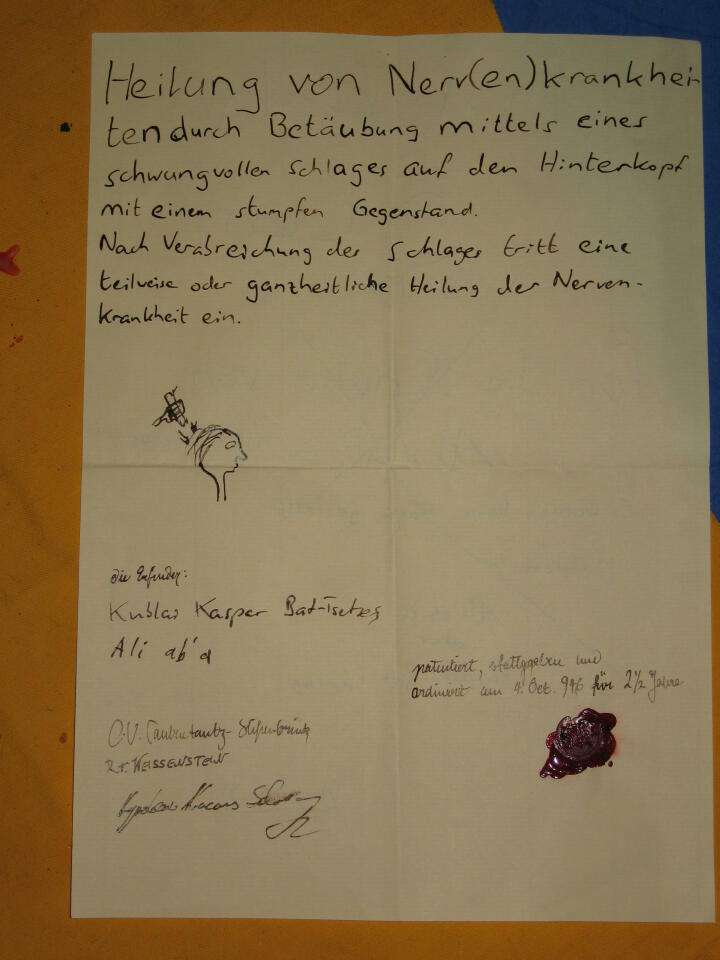 Heilung von Nerv(en)krankhei
ten durch Betäubung mittels eines
schwungvollen Schlages auf den Hinterkopf
mit einem stumpfen Gegenstand.
Nach Verabreichung des Schlages tritt eine
teilweise oder ganzheitliche Heilung der Nerven-
krankheit ein.
die Erfinder:
Kublai Kasper Bat-Tsetseg
Ali ab'd
patentiert, stattgegeben und
ordiniert am 4. Oct. 946 für 2 1/2 Jahre
C.V.
WEISSENSTEIN